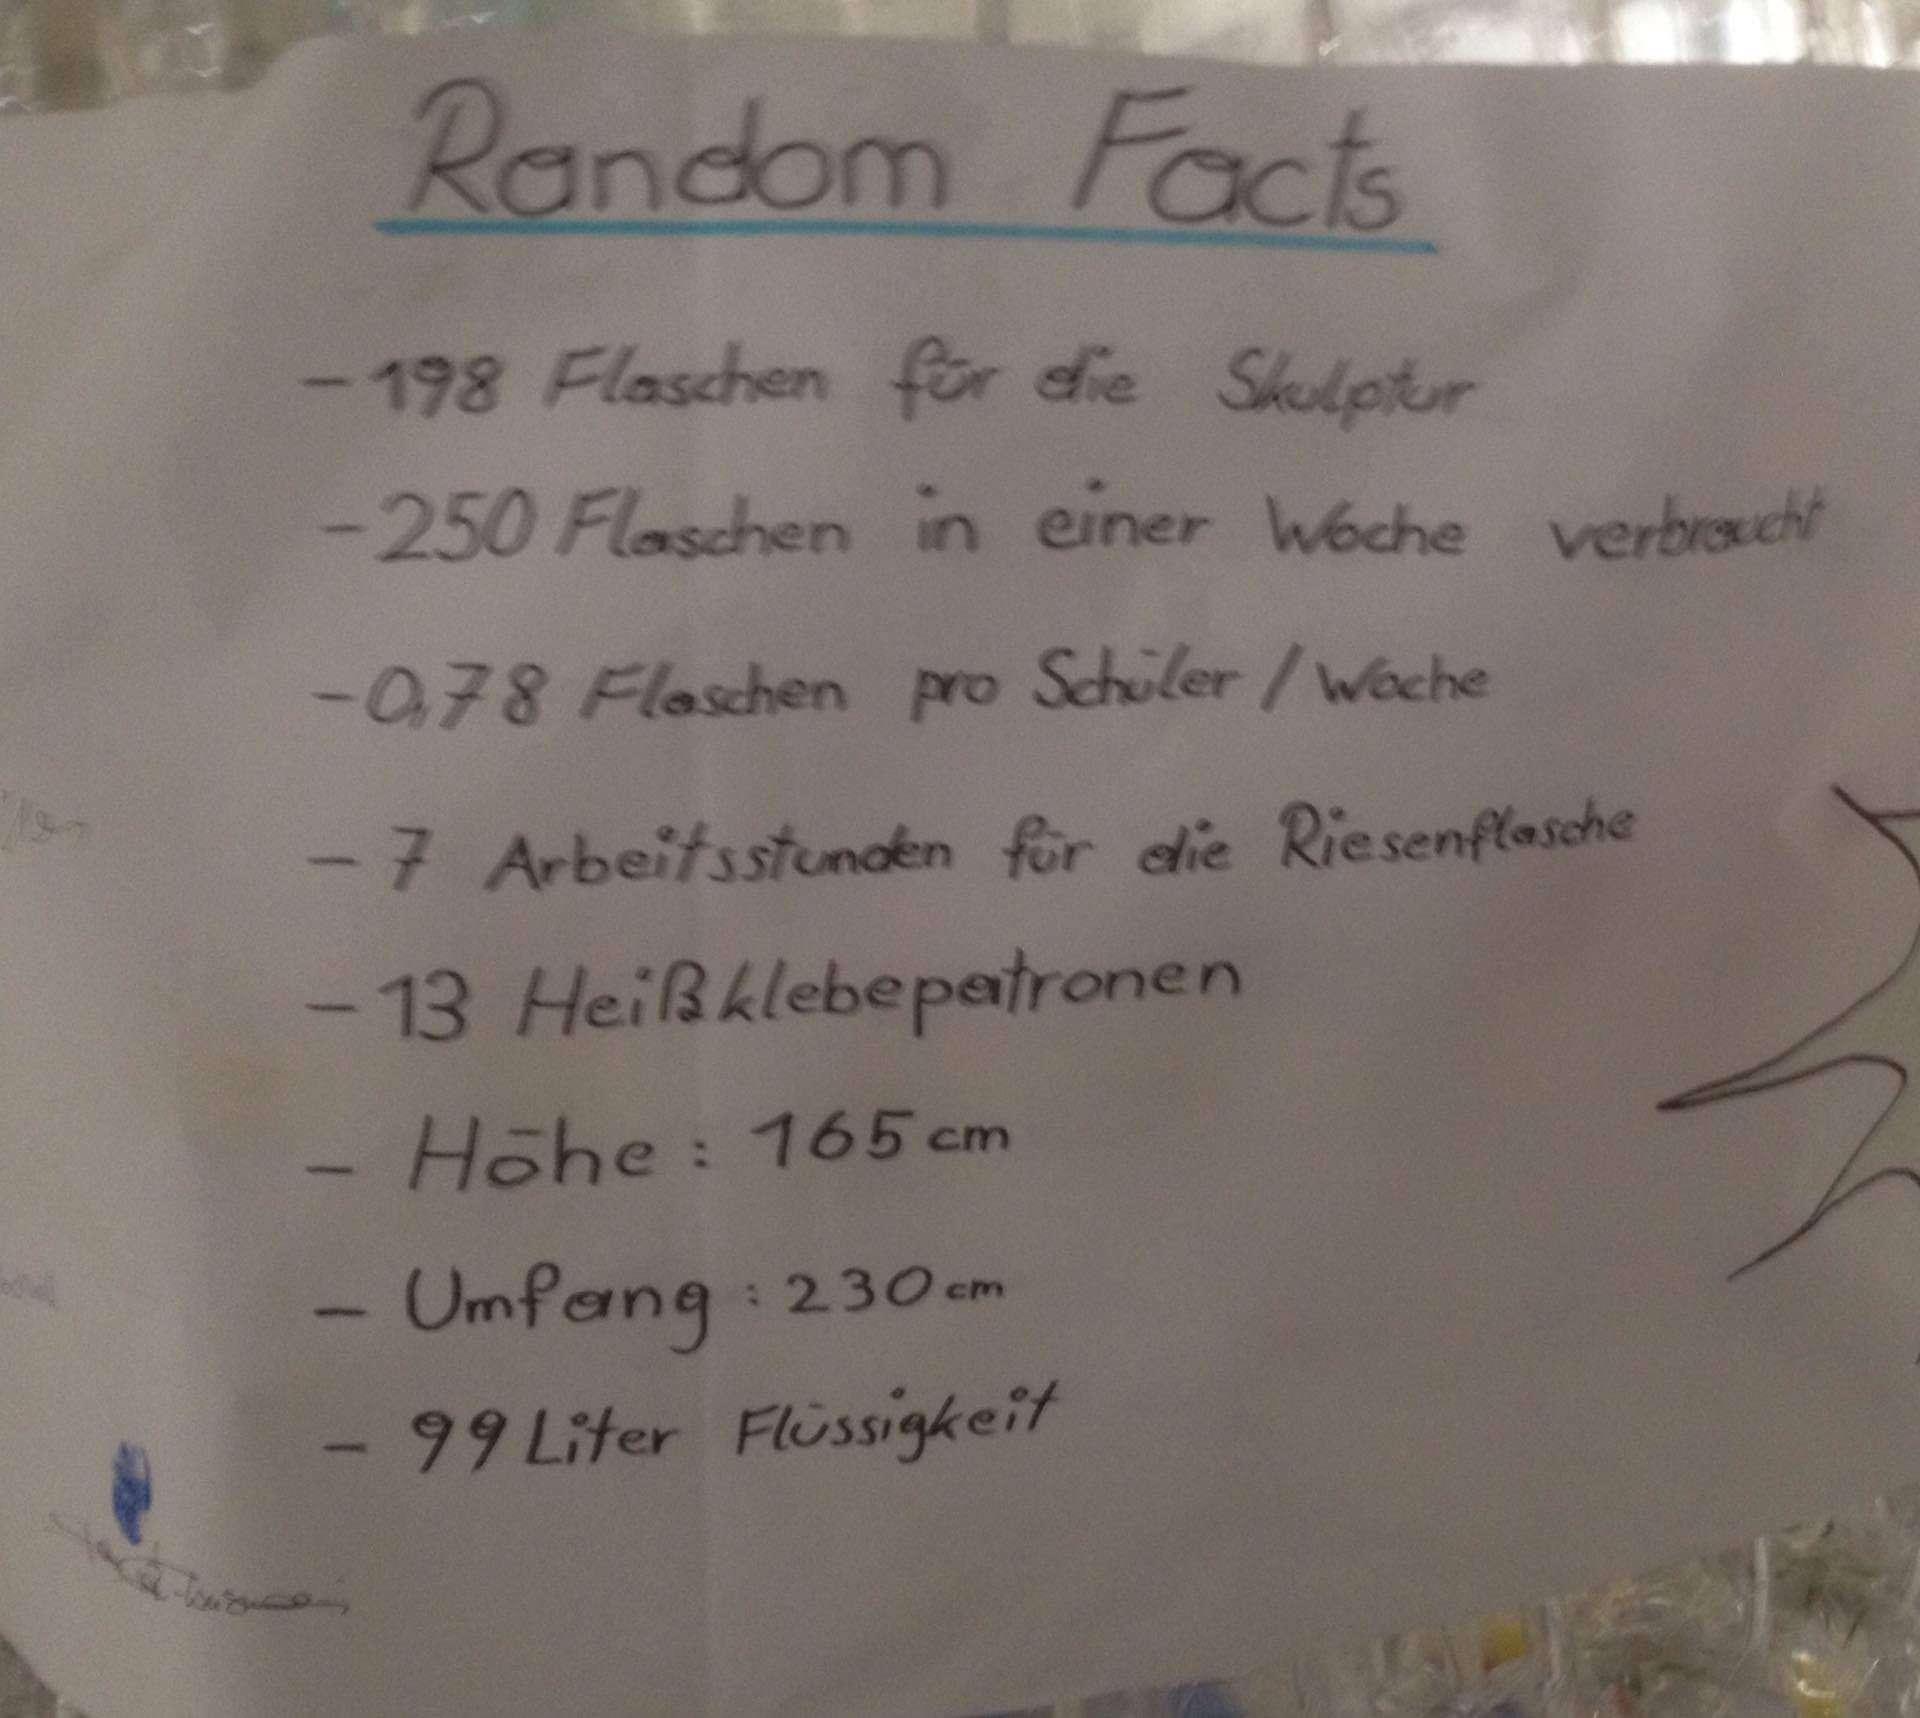 Random Facts
- 198 Flaschen für die Skulptur
- 250 Flaschen in einer Woche verbraucht
- 0,78 Flaschen pro Schüler / Woche
- 7 Arbeitsstunden für die Riesenflasche
- 13 Heißklebepatronen
- Höhe : 165 cm
- Umfang : 230 cm
- 99 Liter Flüssigkeit